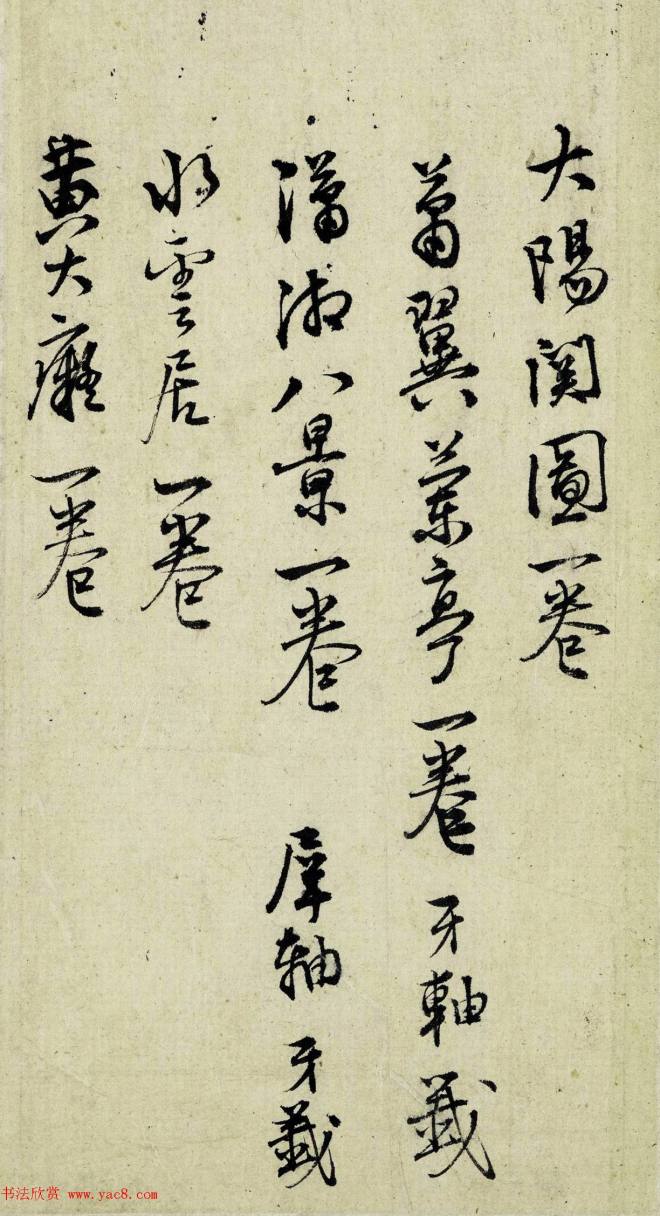 大陽関圖一卷
蕭翼蘭亭一卷 牙軸籤
瀟湘八景一卷 犀軸 牙籤
水雲居一卷
黄大癡一卷
书法欣赏 www.yac8.com